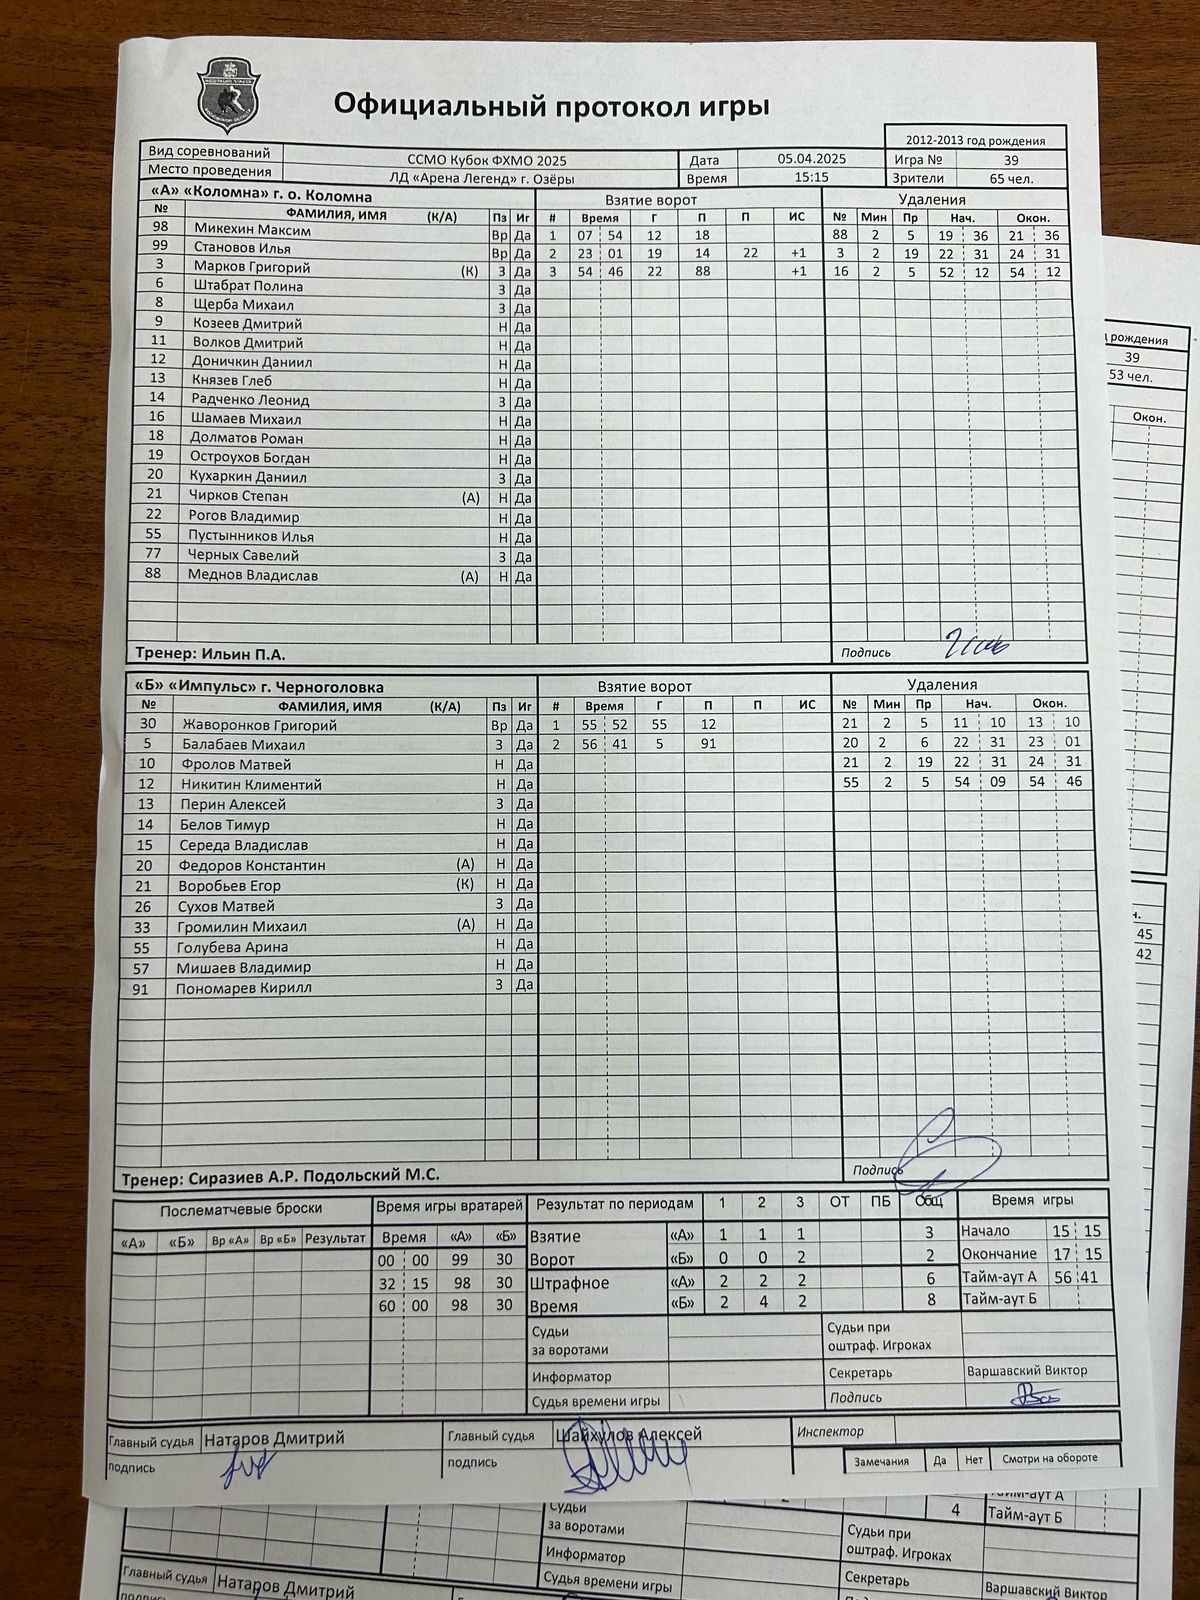 Официальный протокол игры
2012-2013 год рождения
Вид соревнований ССМО Кубок ФХМО 2025 Дата 05.04.2025 Игра № 39
Место проведения ЛД «Арена Легенд» г. Озёры Время 15:15 Зрители 65 чел.
«А» «Коломна» г. о. Коломна Взятие ворот Удаления
№ ФАМИЛИЯ, ИМЯ (К/А) Пз Иг # Время Г П П ИС № Мин Пр Нач. Окон.
98 Микехин Максим Вр Да 1 07 54 12 18 88 2 5 19 36 21 36
99 Становов Илья Вр Да 2 23 01 19 14 22 +1 3 2 19 22 31 24 31
3 Марков Григорий (К) З Да 3 54 46 22 88 +1 16 2 5 52 12 54 12
6 Штабрат Полина З Да
8 Щерба Михаил З Да
9 Козеев Дмитрий Н Да
11 Волков Дмитрий Н Да
12 Доничкин Даниил Н Да
13 Князев Глеб Н Да
14 Радченко Леонид З Да
16 Шамаев Михаил Н Да
18 Долматов Роман Н Да
19 Остроухов Богдан Н Да
20 Кухаркин Даниил З Да
21 Чирков Степан (А) Н Да
22 Рогов Владимир Н Да
55 Пустынников Илья Н Да
77 Черных Савелий З Да
88 Меднов Владислав (А) Н Да
Тренер: Ильин П.А. Подпись
«Б» «Импульс» г. Черноголовка Взятие ворот Удаления
№ ФАМИЛИЯ, ИМЯ (К/А) Пз Иг # Время Г П П ИС № Мин Пр Нач. Окон.
30 Жаворонков Григорий Вр Да 1 55 52 55 12 21 2 5 11 10 13 10
5 Балабаев Михаил З Да 2 56 41 5 91 20 2 6 22 31 23 01
10 Фролов Матвей Н Да 21 2 19 22 31 24 31
12 Никитин Климентий Н Да 55 2 5 54 09 54 46
13 Перин Алексей З Да
14 Белов Тимур Н Да
15 Середа Владислав Н Да
20 Федоров Константин (А) Н Да
21 Воробьев Егор (К) Н Да
26 Сухов Матвей З Да
33 Громилин Михаил (А) Н Да
55 Голубева Арина Н Да
57 Мишаев Владимир Н Да
91 Пономарев Кирилл З Да
Тренер: Сиразиев А.Р. Подольский М.С. Подпись
Послематчевые броски Время игры вратарей Результат по периодам 1 2 3 ОТ ПБ Общ Время игры
«А» «Б» Вр «А» Вр «Б» Результат Время «А» «Б» Взятие «А» 1 1 1 3 Начало 15 15
00 00 99 30 Ворот «Б» 0 0 2 2 Окончание 17 15
32 15 98 30 Штрафное «А» 2 2 2 6 Тайм-аут А 56 41
60 00 98 30 Время «Б» 2 4 2 8 Тайм-аут Б
Судьи за воротами Судьи при оштраф. Игроках
Информатор Секретарь Варшавский Виктор
Судья времени игры Подпись
Главный судья Натаров Дмитрий Главный судья Шайхулов Алексей Инспектор
подпись подпись Замечания Да Нет Смотри на обороте
рождения
39
53 чел.
Окон.
45
42
Тайм-аут А
4 Тайм-аут Б
Судьи
за воротами Судьи при
оштраф. Игроках
Информатор
Судья времени игры Секретарь Варшавский Виктор
Главный судья Натаров Дмитрий